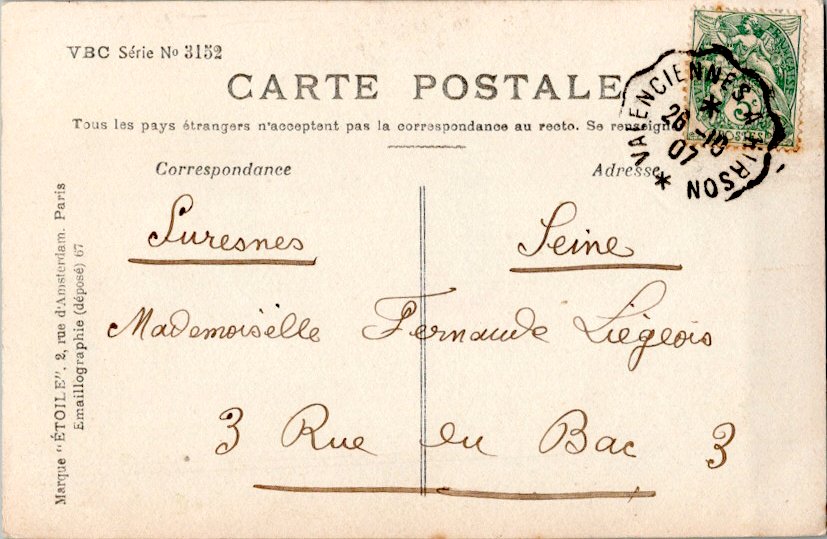 VBC Série No 3152
CARTE POSTALE
Tous les pays étrangers n'acceptent pas la correspondance au recto. Se renseign
Correspondance
Adresse
VALENCIENNES A HIRSON
26 -10
07
5c
POSTES
Suresnes
Seine
Mademoiselle Fernande Liégeois
3 Rue du Bac 3
Marque "ÉTOILE", 2, rue d'Amsterdam. Paris
Emaillographie (déposé) 67